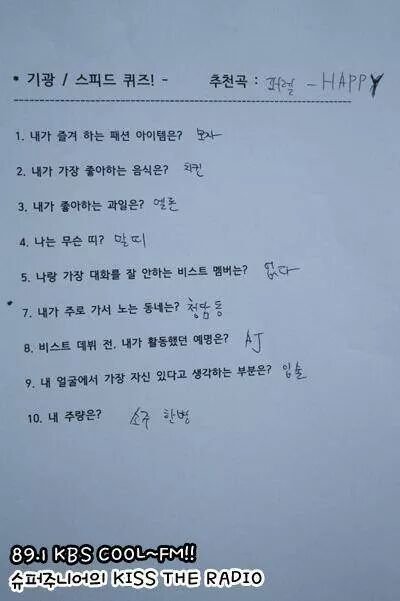 * 기광 / 스피드 퀴즈! - 추천곡 : 퍼렐 - HAPPY
1. 내가 즐겨 하는 패션 아이템은? 모자
2. 내가 가장 좋아하는 음식은? 치킨
3. 내가 좋아하는 과일은? 멜론
4. 나는 무슨 띠? 말띠
5. 나랑 가장 대화를 잘 안하는 비스트 멤버는? 없다
* 7. 내가 주로 가서 노는 동네는? 청담동
8. 비스트 데뷔 전, 내가 활동했던 예명은? AJ
9. 내 얼굴에서 가장 자신 있다고 생각하는 부분은? 입술
10. 내 주량은? 소주 한병
89.1 KBS COOL~FM!!
슈퍼주니어의 KISS THE RADIO